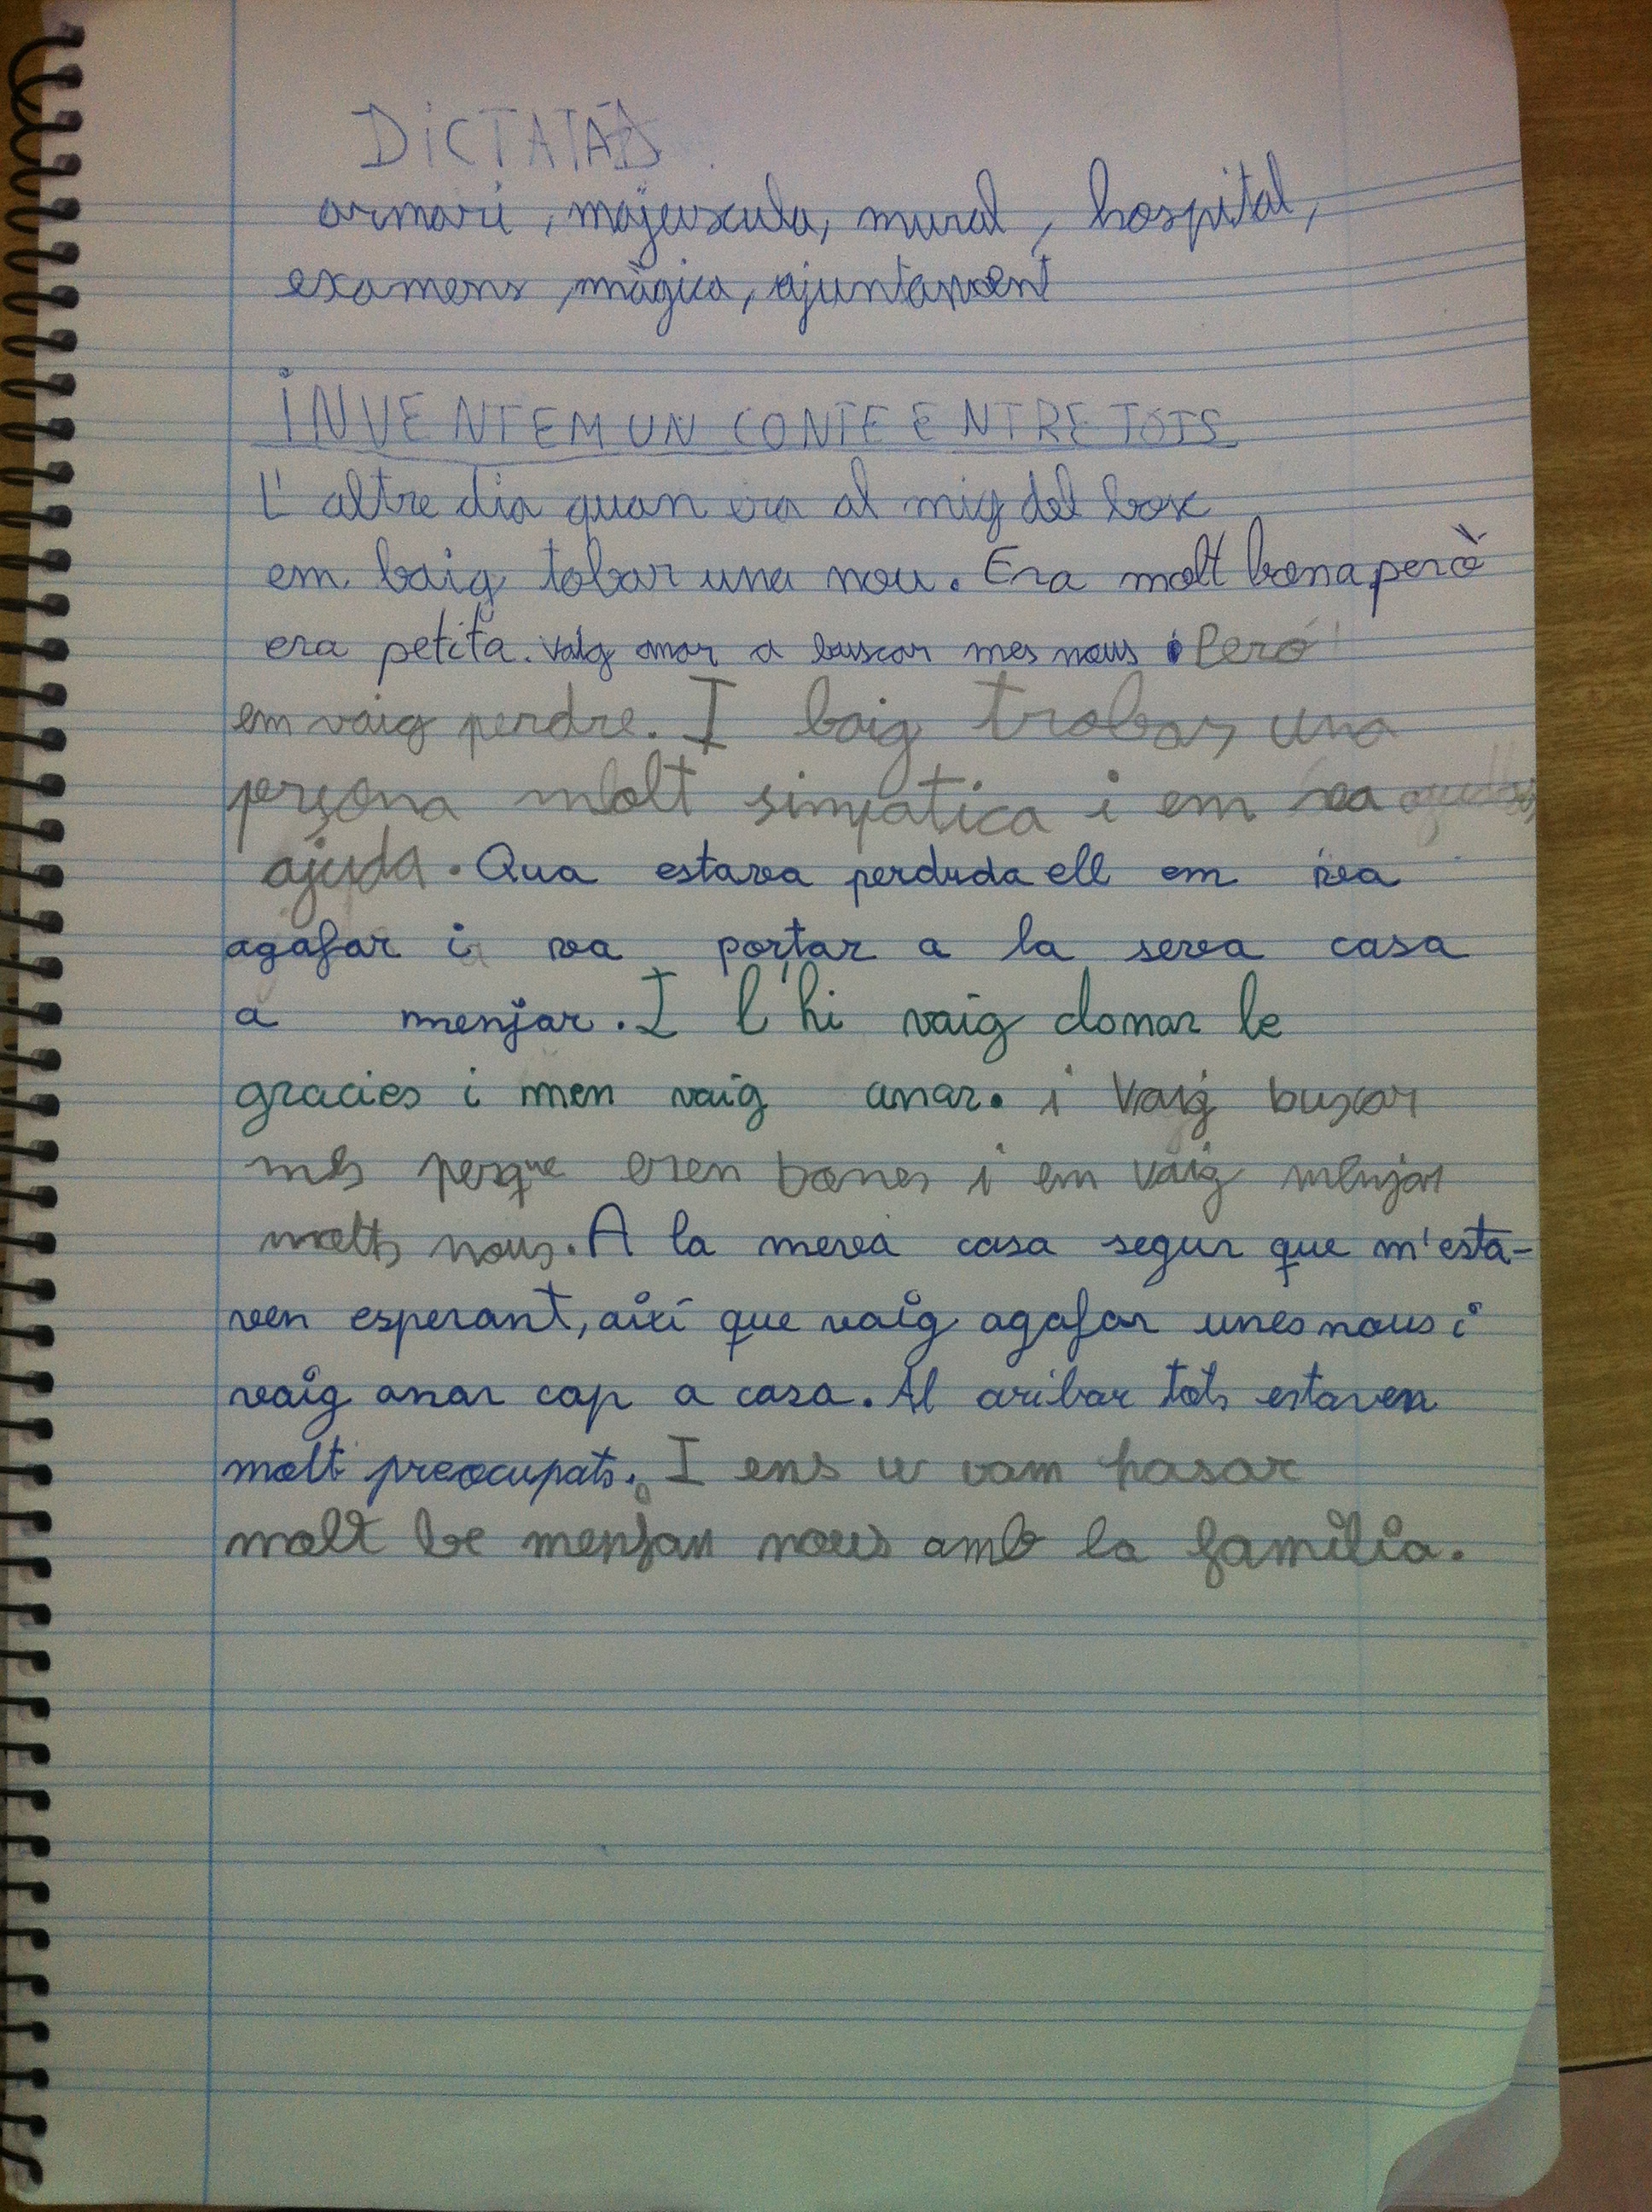 DICTATAD
armari, majuscula, mural, hospital,
examens, màgica, ajuntament
INVENTEM UN CONTE ENTRE TOTS
L'altre dia quan era al mig del bosc
em baig tobar una nou. Era molt bona però
era petita. Vaig anar a buscar mes nous Peró
em vaig perdre. I baig trobar una
persona molt simpatica i em va
ajuda. Qua estava perduda ell em va
agafar i va portar a la seva casa
a menjar. I l'hi vaig donar le
gracies i men vaig anar. i Vaig buscar
més perque eren bones i em vaig menjar
molts nous. A la meva casa segur que m'esta-
ven esperant, així que vaig agafar unes nous i
vaig anar cap a casa. Al aribar tots estaven
molt preocupats. I ens u vam pasar
molt be menjan nous amb la família.